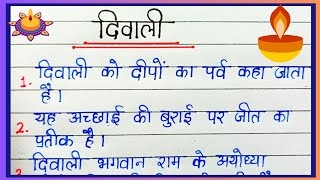 दिवाली
1. दिवाली को दीपों का पर्व कहा जाता
है।
2. यह अच्छाई की बुराई पर जीत का
प्रतीक है।
दिवाली भगवान राम के अयोध्या